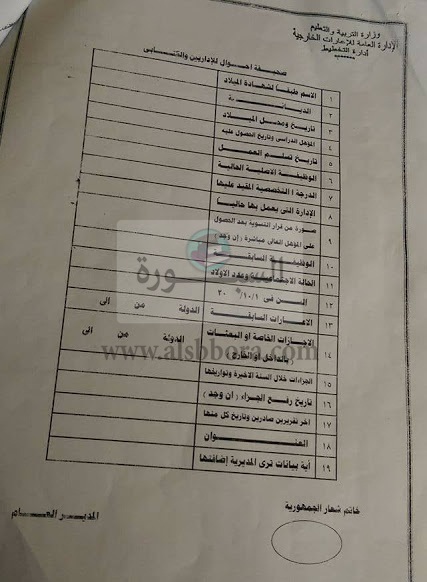 وزارة التربية والتعليم
الإدارة العامة للإعارات الخارجية
إدارة التخطيط
صحيفة احوال للإداريين والفنيين
١ الاسم طبقاً لشهادة الميلاد
٢ الديانة
٣ تاريخ ومحل الميلاد
٤ المؤهل الدراسى وتاريخ الحصول عليه
٥ تاريخ تسلم العمل
٦ الوظيفة الاصلية الحالية
٧ الدرجة ( التخصصية المقيد عليها
٨ الإدارة التى يعمل بها حالياً
٩ صورة من قرار التسوية بعد الحصول
على المؤهل العالى مباشرة ( إن وجد )
١٠ الوظيفة السابقة
١١ الحالة الاجتماعية وعدد الاولاد
١٢ السن فى ١٠/١/ ٢٠
١٣ الاعارات السابقة الدولة من الى
١٤ الاجازات الخاصة او البعثات الدولة من الى
( بالداخل أو الخارج )
١٥ الجزاءات خلال السنة الاخيرة وتواريخها
١٦ تاريخ رفع الجزاء ( ان وجد )
١٧ اخر تقريرين صادرين وتاريخ كل منها
١٨ العنوان
١٩ أية بيانات ترى المديرية إضافتها
خاتم شعار الجمهورية
المدير العام
السبورة
www.alsbbora.com